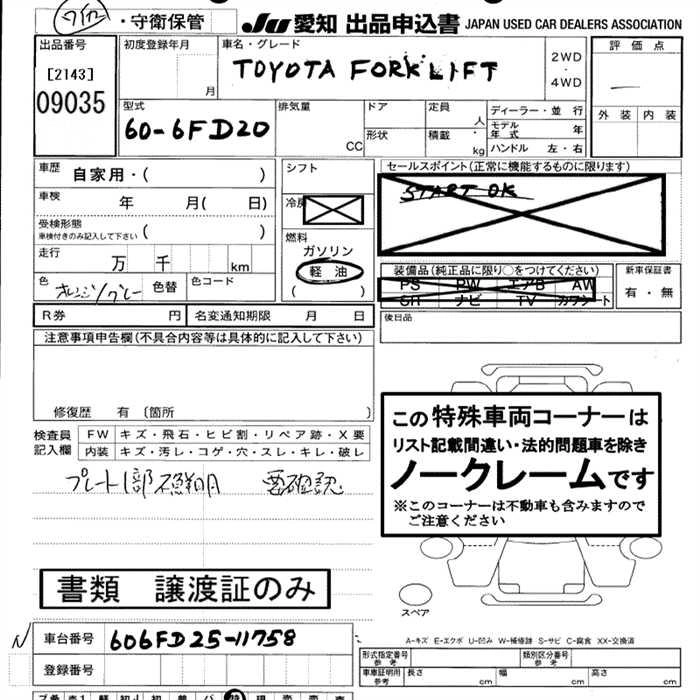 ・守衛保管 JU 愛知 出品申込書 JAPAN USED CAR DEALERS ASSOCIATION
出品番号 初度登録年月 車名・グレード 評価点
[2143] 月 TOYOTA FORKLIFT 2WD
・
4WD
09035 外装 内装
型式 排気量 ドア 定員 ディーラー・並行
60-6FD20 人 モデル年式 年
CC 形状 積載 kg ハンドル 左・右
車歴 自家用・( ) シフト セールスポイント(正常に機能するものに限ります)
START OK
車検 年 月( 日) 冷房
受検形態
車検付きのみ記入して下さい ( ) 燃料
ガソリン
走行 万 千 km 軽油 装備品(純正品に限り○をつけてください) 新車保証書
PS PW エアB AW
色 オレンジ/グレー 色替 色コード ( ) SR ナビ TV カワシート 有・無
R券 円 名変通知期限 月 日 後日品
注意事項申告欄(不具合内容等は具体的に記入して下さい)
修復歴 有〔箇所 〕
この特殊車両コーナーは
リスト記載間違い・法的問題車を除き
ノークレームです
※このコーナーは不動車も含みますので
ご注意ください
検査員 FW キズ・飛石・ヒビ割・リペア跡・X要
記入欄 内装 キズ・汚レ・コゲ・穴・スレ・キレ・破レ
プレート1部不鮮明 要確認
書類 譲渡証のみ
スペア
A-キズ E-エクボ U-凹み W-補修跡 S-サビ C-腐食 XX-交換済
N 車台番号 606FD25-11758
登録番号
型式指定番号 参考 類別区分番号 参考
車庫証明用 参考 長さ cm 幅 cm 高さ cm